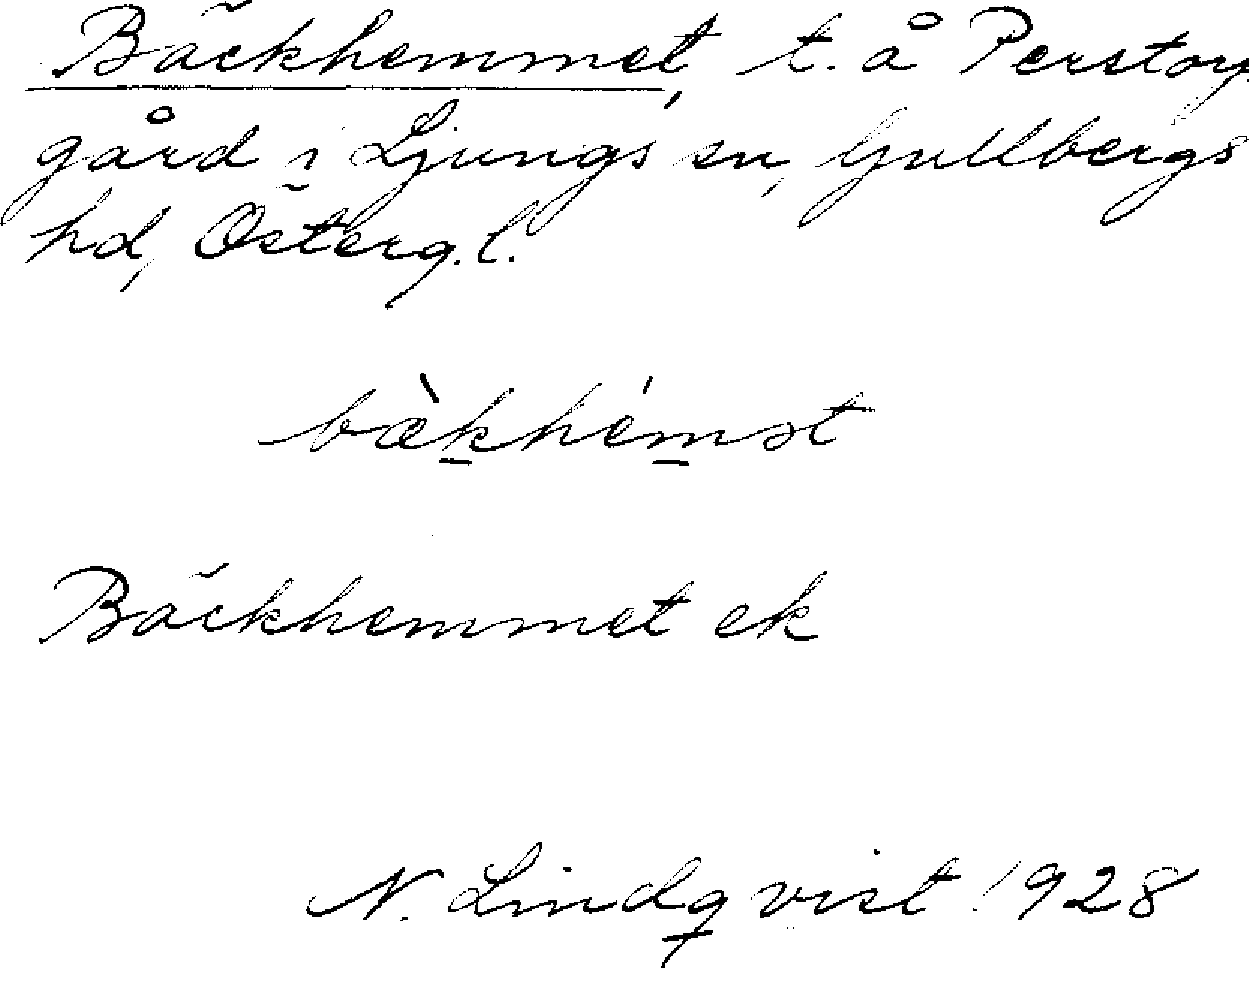 Bäckhemmet, t. å Perstorp
gård i Ljungs sn, Gullbergs
hd, Österg. l.
bæ̀khémət
Bäckhemmet ek
N. Lindqvist 1928